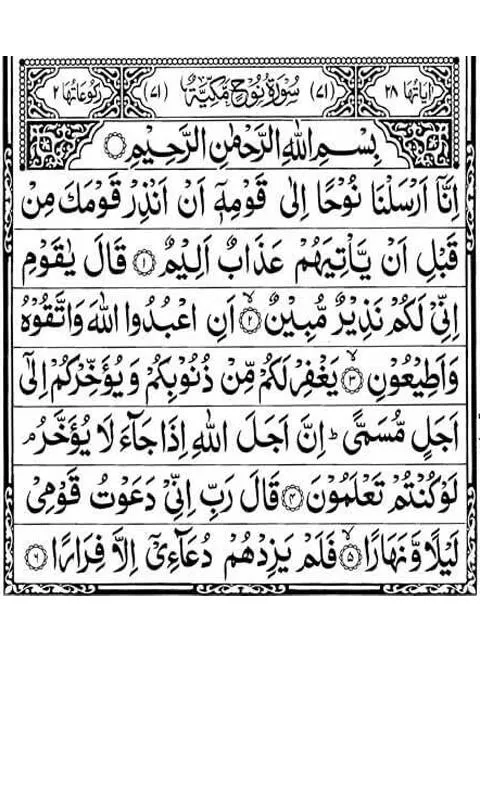 اٰيَاتُهَا ٢٨ (٧١) سُوْرَةُ نُوْحٍ مَّكِّيَّةٌ (٧١) رُكُوْعَاتُهَا ٢
بِسْمِ اللهِ الرَّحْمٰنِ الرَّحِيْمِ
اِنَّاۤ اَرْسَلْنَا نُوْحًا اِلٰى قَوْمِهٖۤ اَنْ اَنْذِرْ قَوْمَكَ مِنْ
قَبْلِ اَنْ يَّاْتِيَهُمْ عَذَابٌ اَلِيْمٌ ۝١ قَالَ يٰقَوْمِ
اِنِّىْ لَكُمْ نَذِيْرٌ مُّبِيْنٌ ۝٢ۙ اَنِ اعْبُدُوا اللهَ وَاتَّقُوْهُ
وَاَطِيْعُوْنِ ۝٣ۙ يَغْفِرْ لَكُمْ مِّنْ ذُنُوْبِكُمْ وَيُؤَخِّرْكُمْ اِلٰۤى
اَجَلٍ مُّسَمًّى ؕ اِنَّ اَجَلَ اللهِ اِذَا جَآءَ لَا يُؤَخَّرُ ۘ
لَوْ كُنْتُمْ تَعْلَمُوْنَ ۝٤ قَالَ رَبِّ اِنِّىْ دَعَوْتُ قَوْمِىْ
لَيْلًا وَّنَهَارًا ۝٥ۙ فَلَمْ يَزِدْهُمْ دُعَآءِىْۤ اِلَّا فِرَارًا ۝٦